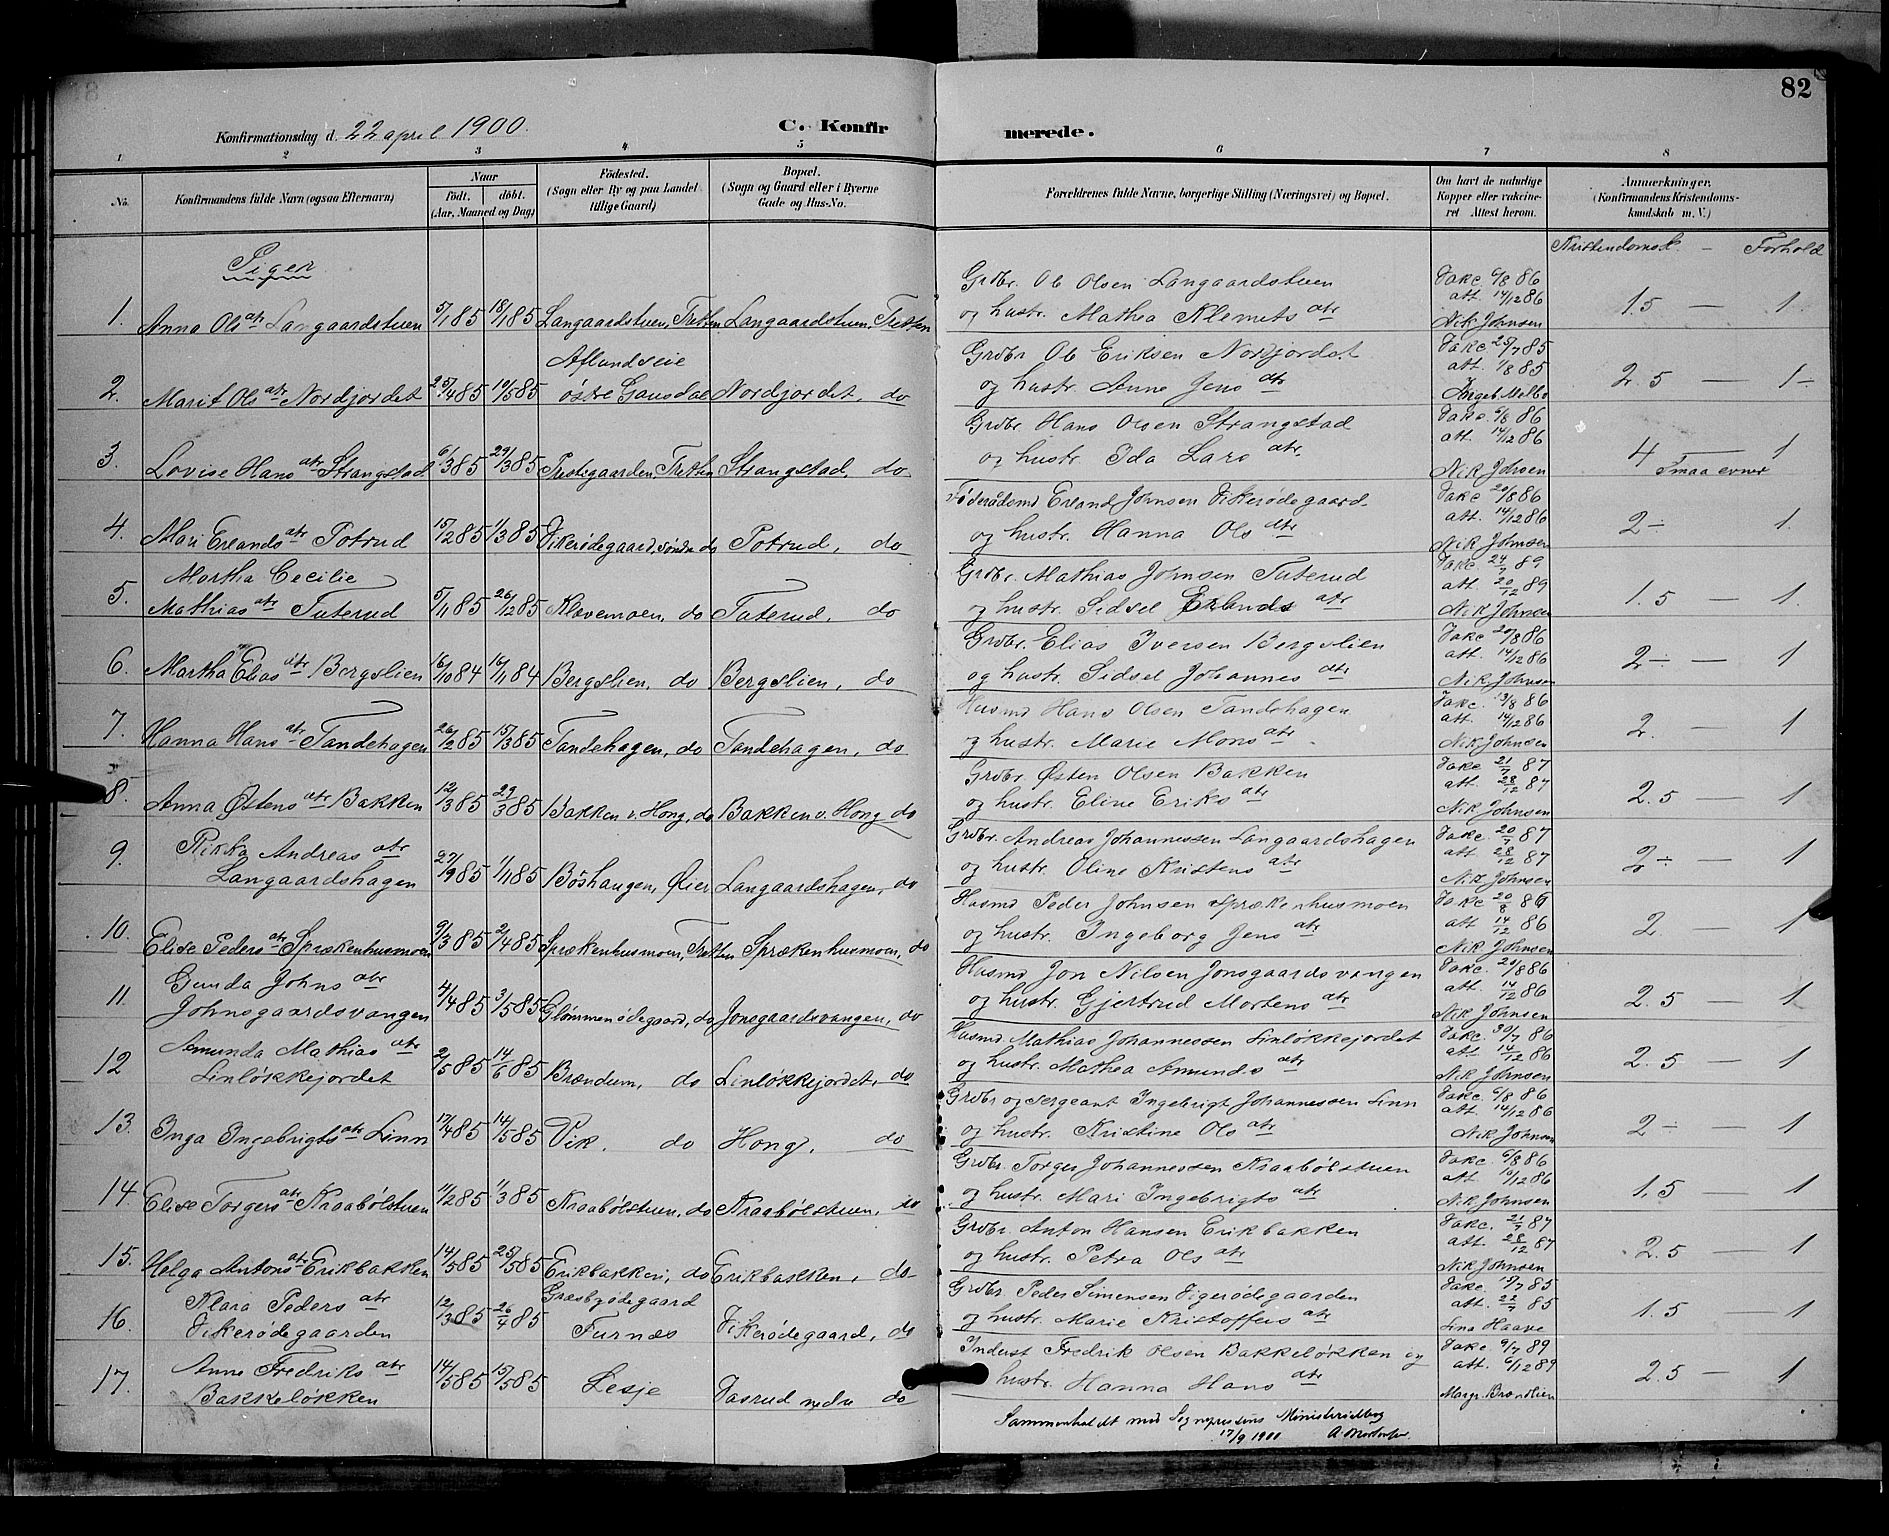 82
Konfirmationsdag d. 22 april 1900.
C. Konfirmerede.
1 2 3 4 5 6 7 8
No.
Konfirmandens fulde Navn (ogsaa Efternavn)
Naar
født. døbt.
(Aar, Maaned og Dag)
Fødested.
(Sogn eller By og paa Landet
tillige Gaard)
Bopæl.
(Sogn og Gaard eller i Byerne
Gade og Hus-No.
Forældrenes fulde Navne, borgerlige Stilling (Næringsvei) og Bopæl.
Om havt de naturlige
Kopper eller vaksine-
ret Attest herom.
Anmærkninger.
(Konfirmandens Kristendoms-
kundskab m. V.)
Kristendomsk. — Forhold
Piger
1. Anna Olsdtr Langaardstuen 5/1 85 18/1 85 Langaardstuen, Tretten Langaardstuen, Tretten
Grdbr. Ob Olsen Langaardstuen
og hustr. Mathea Klemetsdtr
Vakc. 6/8 86
att. 14/12 86
Nik Johnsen
1.5 — 1.
2. Marit Olsdtr Nordjordet 25/4 85 10/5 85
Aflundseie
østre Gausdal Nordjordet, do
Grdbr Ob Eriksen Nordjordet
og hustr. Anne Jensdtr
Vakc 25/7 85
att. 1/8 85
Ingeb. Melbø
2.5 — 1-
3. Lovise Hansdtr Strangstad 6/3 85 29/3 85 Prestegaarden, Tretten Strangstad, do
Grdbr. Hans Olsen Strangstad
og hustr. Ida Larsdtr.
Vakc. 6/8 86
att. 14/12 86
Nik Johsen
4 — 1
Smaa evner
4. Mari Erlandsdtr Potrud 15/2 85 1/3 85 Vikerødegaard, søndre do Potrud, do
Føderådsmd Erland Johnsen Vikerødegaard
og hustr. Hanna Olsdtr
Vakc 20/8 86
att. 14/12 86
Nik Johnsen
2÷ 1.
5. Martha Cecilie
Mathiasdtr Tuterud 5/11 85 26/12 85 Klevemoen, do Tuterud, do
Grdbr. Mathias Johnsen Tuterud
og hustr. Sidsel Erlandsdtr
Vakc 24/7 89
att. 20/12 89
Nik Johnsen
1.5 — 1.
6. Martha Eliasdtr Bergslien 16/10 84 16/11 84 Bergslien, do Bergslien, do
Grdbr. Elias Iversen Bergslien
og hustr. Sidsel Johannesdtr
Vakc 20/8 86
att. 14/12 86
Nik Johnsen
2÷ — 1
7. Hanna Hansdtr Tandehagen 26/2 85 15/3 85 Tandehagen, do Tandehagen, do
Husmd Hans Olsen Tandehagen
og hustr. Marie Monsdtr
Vakc. 13/8 86
att. 14/12 86
Nik Johnsen
2. — 1
8. Anna Østensdtr Bakken 12/3 85 29/3 85 Bakken v. Hong, do Bakken v. Hong do
Grdbr. Østen Olsen Bakken
og hustr. Eline Eriksdtr
Vakc 21/7 87
att. 28/12 87
Nik Johnsen
2.5 — 1
9. Rikka Andreasdtr
Langaardshagen 27/9 85 1/11 85 Bøshaugen, Øier Langaardshagen, do
Grdbr. Andreas Johannessen Langaardshagen
og hustr. Oline Kristensdtr
Vakc 20/7 87
att 28/12 87
Nik Johnsen
2÷ — 1
10. Elise Pedersdtr Sprækenhusmoen 9/3 85 2/4 85 Sprækenhusmoen, Tretten Sprækenhusmoen, do
Husmd Peder Johnsen Sprækenhusmoen
og hustr. Ingeborg Jensdtr
Vakc 20/8 86
att 14/12 86
Nik Johnsen
2. — 1
11. Gunda Johnsdtr
Johnsgaardsvangen 4/4 85 3/5 85 Glømmenødegaard, do Jonsgaardsvangen, do
Husmd Jon Nilsen Jonsgaardsvangen
og hustr. Gjertrud Mortensdtr
Vakc. 20/8 86
att. 14/12 86
Nik Johnsen
2.5 — 1
12 Amunda Mathiasdtr
Linløkkejordet 2/5 85 14/6 85 Brændum, do Linløkkejordet, do
Husmd Mathias Johannessen Linløkkejordet
og hustr. Mathea Amundsdtr
Vakc. 30/7 86
att 14/12 86
Nik Johnsen
2.5 — 1
13. Inga Ingebrigtsdtr Linn 17/4 85 14/5 85 Vik. do Hong, do
Grdbr og Sergeant Ingebrigt Johannessen Linn
og hustr. Kristine Olsdtr
Vakc. 6/8 86
att. 14/12 86
Nik Johnsen
2÷ — 1
14. Elise Torgersdtr Kraabølstuen 11/2 85 1/3 85 Kraabølstuen, do Kraabølstuen, do
Grdbr. Torger Johannessen Kraabølstuen
og hustr. Mari Ingebrigtsdtr
Vakc. 6/8 86
att. 10/12 86
Nik Johnsen
1.5 — 1
15. Helga Antonsdtr Erikbakken 14/5 85 25/5 85 Erikbakken, do Erikbakken, do
Grdbr. Anton Hansen Erikbakken
og hustr. Petra Olsdtr
Vakc. 21/7 87
att. 28/12 87
Nik Johnsen
2.5 — 1
16. Klara Pedersdtr
Vikerødegaarden 12/3 85 26/4 85
Græsbyødegaard
Furnæs Vikerødegaard, do
Grdbr. Peder Simensen Vigerødegaarden
og hustr. Marie Kristoffersdtr
Vakc. 15/7 85
att. 22/7 85
Lina Haave
1.5 — 1
17. Anne Fredriksdtr
Bakkeløkken 14/5 85 15/5 85 Lesje Vasrud nedre do
Inderst Fredrik Olsen Bakkeløkken og
hustr. Hanna Hansdtr
Vakc 9/7 89
att. 6/12 89
Margr. Brandlien
2.5 — 1
Sammenholdt med Sognepræstens Ministerialbog
17/9 1900